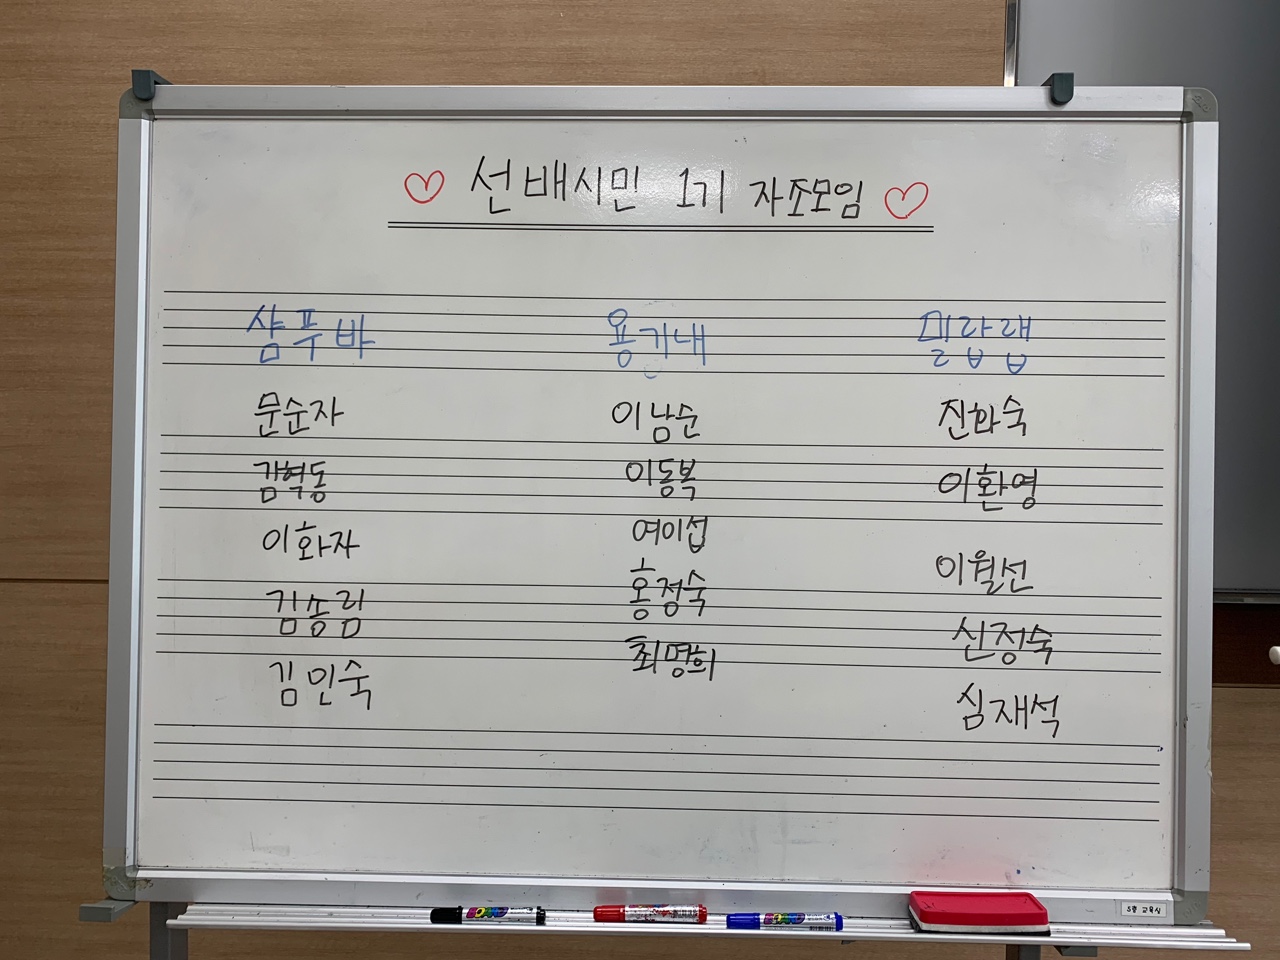 ♡ 선배시민 1기 자조모임 ♡
샴푸바 용기내 밀랍랩
문순자 이남순 진화숙
김혁동 이동복 이환영
이화자 여이섭 이월선
김송림 홍정숙 신정숙
김인숙 최명희 심재석
5층 교육실